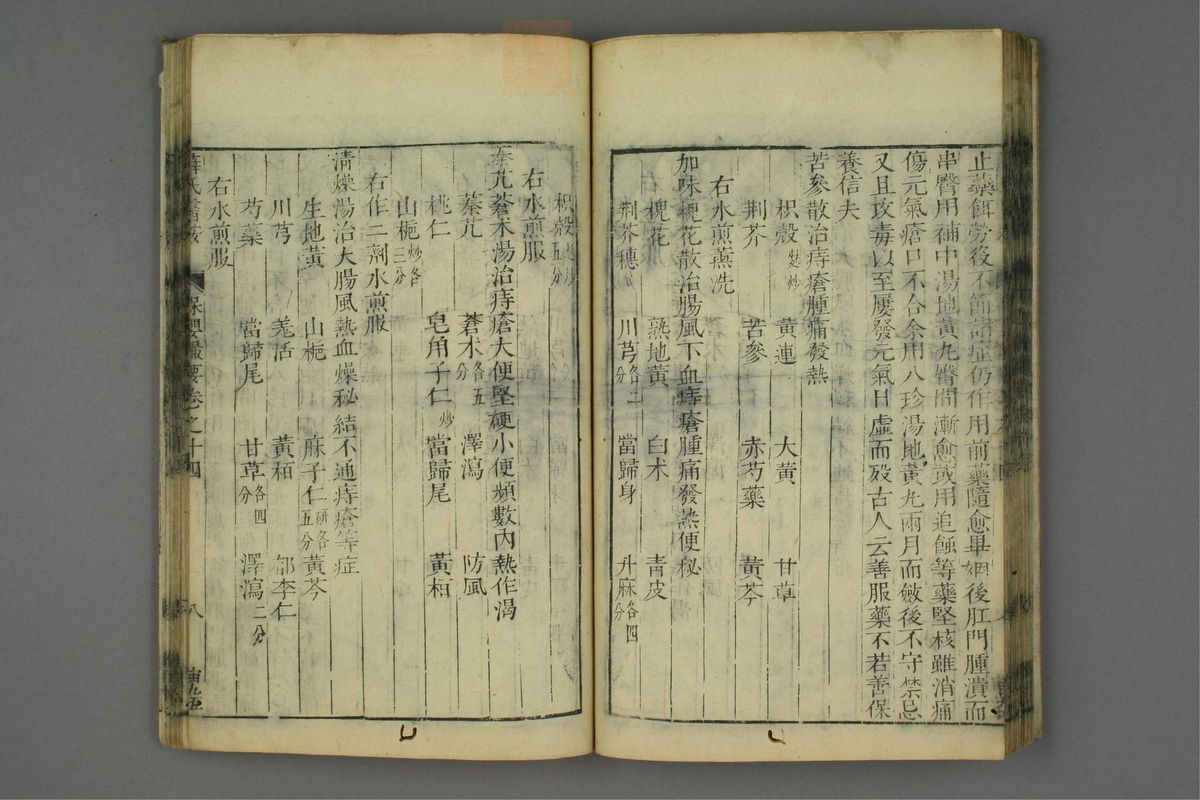 止藥餌勞後不節諸症仍作用前藥隨愈畢姻後肛門腫潰而
串臀用補中湯地黃丸臀間漸愈或用追蝕等藥堅核雖消痛
傷元氣瘡口不合余用八珍湯地黃丸兩月而斂後不守禁忌
又且攻毒以至屢發元氣日虛而歿古人云善服藥不若善保
養信夫
苦參散治痔瘡腫痛發熱
枳殼麩炒 黃連 大黃 甘草
荆芥 苦參 赤芍藥 黃芩
右水煎薰洗
加味槐花散治腸風下血痔瘡腫痛發熱便秘
槐花 熟地黃 白术 青皮
荆芥穗 川芎各二分 當歸身 升麻各四分
枳殼五分
右水煎服
秦艽蒼术湯治痔瘡大便堅硬小便頻數內熱作渴
秦艽 蒼术各五分 澤瀉 防風
桃仁 皂角子仁炒 當歸尾 黃栢
山梔炒各三分
右作二劑水煎服
清燥湯治大腸風熱血燥秘結不通痔瘡等症
生地黃 山梔 麻子仁研各五分 黃芩
川芎 羗活 黃栢 郁李仁
芍藥 當歸尾 甘草各四分 澤瀉二分
右水煎服
薛氏醫按 保嬰撮要卷之十四 八